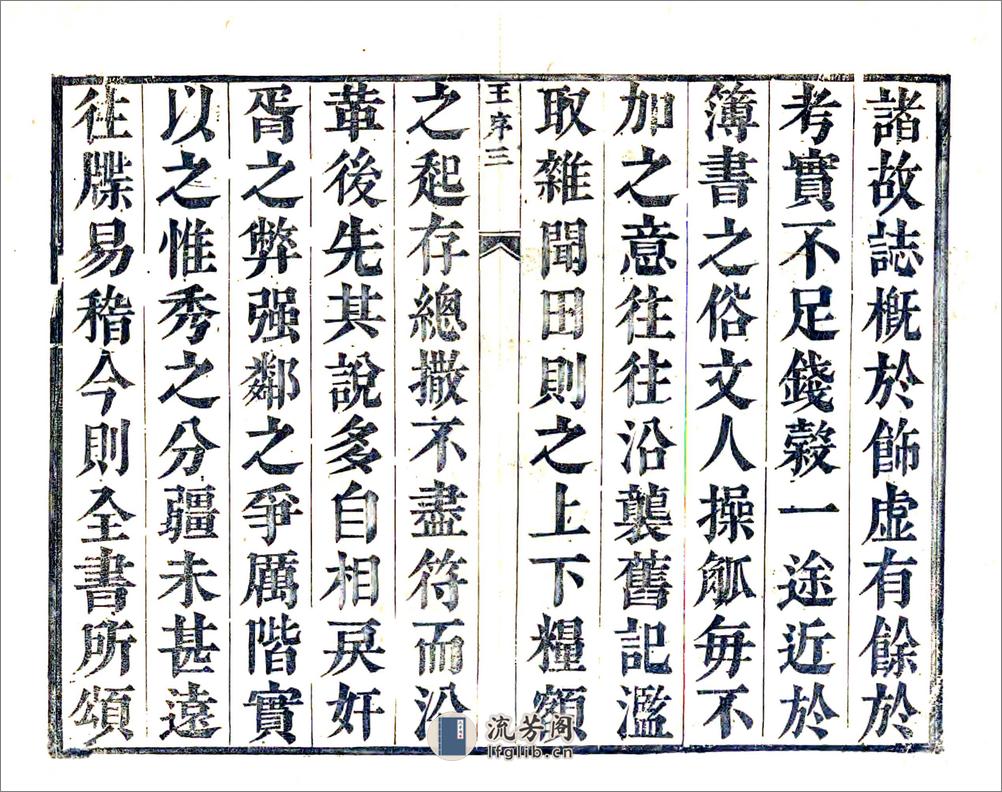 諸故誌槪於飾虛有餘於
考實不足錢榖一途近於
簿書之俗文人操觚每不
加之意往往沿襲舊記濫
取雜聞田則之上下糧額
王序三
之起存總撒不盡符而沿
革後先其說多自相戾奸
胥之弊强鄰之爭厲階實
以之惟秀之分疆未甚遠
往牒易稽今則全書所頒
流芳阁
lfglib.cn